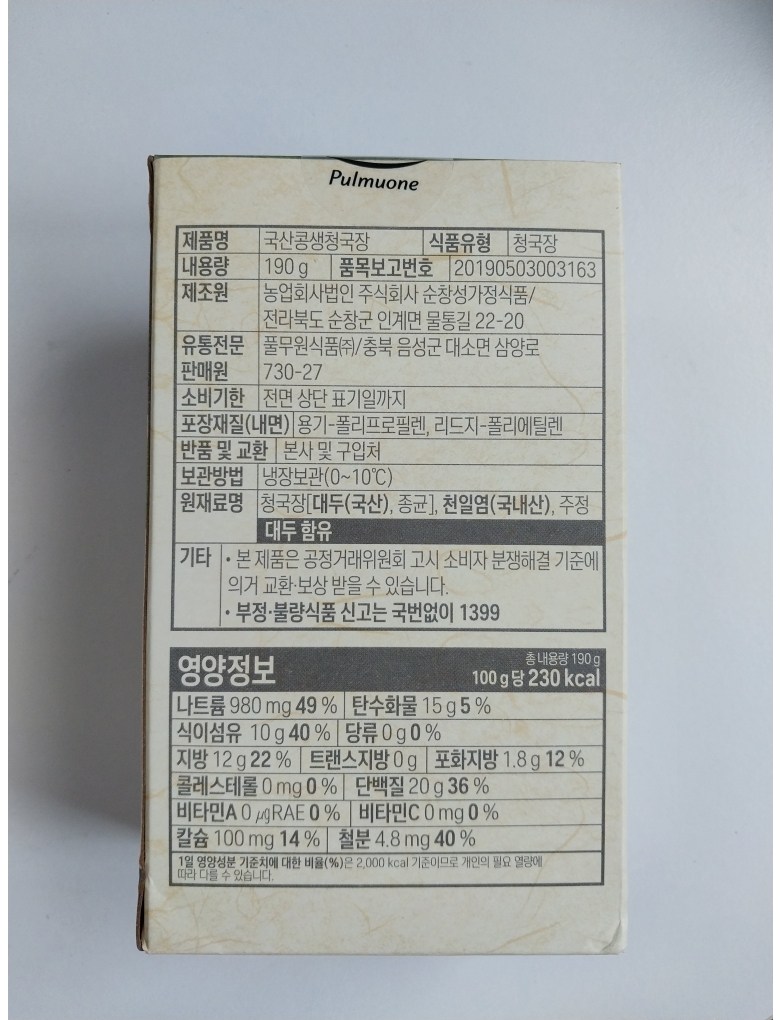 Pulmuone
제품명 국산콩생청국장 식품유형 청국장
내용량 190 g 품목보고번호 20190503003163
제조원 농업회사법인 주식회사 순창성가정식품/
전라북도 순창군 인계면 물통길 22-20
유통전문 풀무원식품㈜/충북 음성군 대소면 삼양로
판매원 730-27
소비기한 전면 상단 표기일까지
포장재질(내면) 용기-폴리프로필렌, 리드지-폴리에틸렌
반품 및 교환 본사 및 구입처
보관방법 냉장보관(0~10℃)
원재료명 청국장[대두(국산), 종균], 천일염(국내산), 주정
대두 함유
기타 • 본 제품은 공정거래위원회 고시 소비자 분쟁해결 기준에
의거 교환·보상 받을 수 있습니다.
• 부정·불량식품 신고는 국번없이 1399
영양정보 총 내용량 190 g
100 g당 230 kcal
나트륨 980 mg 49 % 탄수화물 15 g 5 %
식이섬유 10 g 40 % 당류 0 g 0 %
지방 12 g 22 % 트랜스지방 0 g 포화지방 1.8 g 12 %
콜레스테롤 0 mg 0 % 단백질 20 g 36 %
비타민A 0 μgRAE 0 % 비타민C 0 mg 0 %
칼슘 100 mg 14 % 철분 4.8 mg 40 %
1일 영양성분 기준치에 대한 비율(%)은 2,000 kcal 기준이므로 개인의 필요 열량에
따라 다를 수 있습니다.